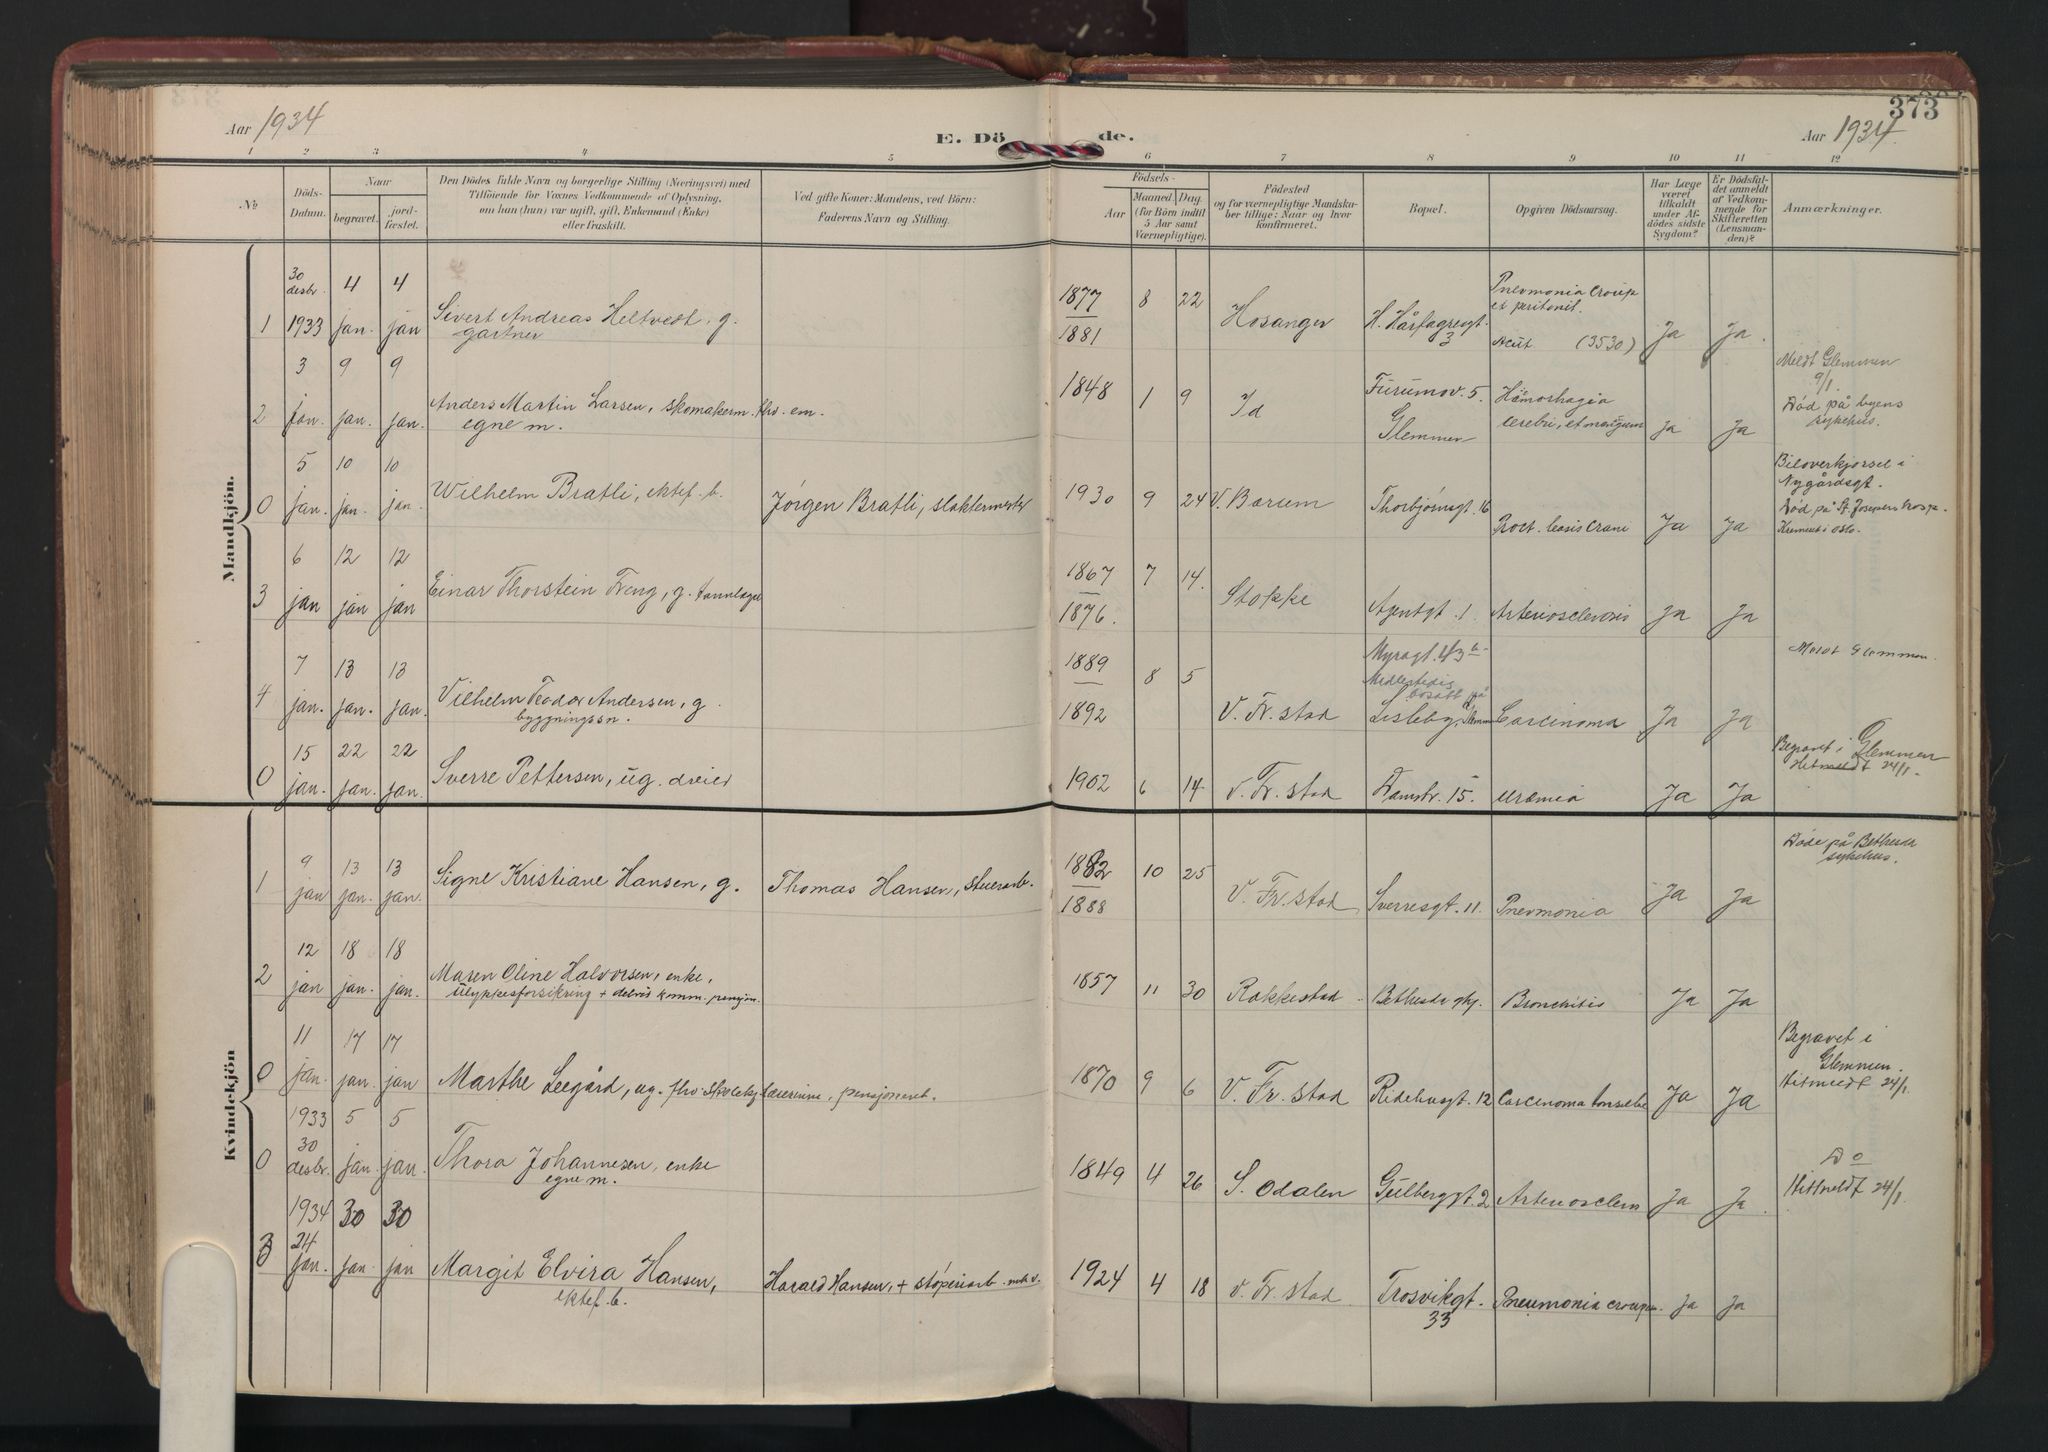 Aar 1934
E. Dö
de.
373
Aar 1934.
1 2 3 4 5 6 7 8 9 10 11 12
No
Döds-Datum.
Naar
begravet.
jord-fæstet.
Den Dödes fulde Navn og borgerlige Stilling (Næringsvei) med
Tilföiende for Voxnes Vedkommende af Oplysning,
om han (hun) var ugift, gift, Enkemand (Enke)
eller fraskilt.
Ved gifte Koner: Mandens, ved Börn:
Faderens Navn og Stilling.
Födsels-
Aar
Maaned. Dag.
(for Börn indtil
5 Aar samt
Værnepligtige).
Födested
og for værnepligtige Mandska-
ber tillige: Naar og hvor
konfirmeret.
Bopæl.
Opgiven Dödsaarsag.
Har Læge
været
tilkaldt
under Af-
dödes sidste
Sygdom?
Er Dödsfal-
det anmeldt
af Vedkom-
mende for
Skifteretten
(Lensman-
den)?
Anmærkninger.
Mandkjön.
1 30 desbr. 1933 4 jan. 4 jan Sivert Andreas Heltvedt, g. gartner 1877 1881 8 22 Hosanger H. Hårfagresgt. 3 Pnevmonia Croup et peritonit. Acut (3530) Ja Ja.
2 3 jan. 9 jan. 9 jan. Anders Martin Larsen, skomakerm. fhv. em. egne m. 1848 1 9 Id Furumov. 5. Glemmen Hämorhagia cerebri, et Ja Ja Meldt Glemmen 9/1. Död på byens sykehus.
0 5 jan. 10 jan. 10 jan. Wilhelm Bratli, ektef. b. Jørgen Bratli, slaktermester 1930 9 24 V. Bærum Thorbjörnsgt. 16 Ja Ja Biloverkjørsel i Nygårdsgt. Död på St. Josephs hosp. Kremert i Oslo.
3 6 jan 12 jan 12 jan Einar Thorstein Freng, g. tannlæge 1867 1876. 7 14. Stokke Agentgt. 1. Arteriosclerosis Ja Ja
4 7 jan. 13 jan. 13 jan. Vilhelm Teodor Andersen, g. byggningssn. 1889 1892 8 5 V. Fr. stad Myragt. 43 a Midlertidig bosatt på Lisleby, Glemmen Carcinoma Ja Ja Meldt Glemmen.
0 15 jan. 22 jan. 22 jan. Sverre Pettersen, ug. dreier 1902 6 14 V. Fr. stad Damstr. 15. Uræmia Ja Ja Begravet i Glemmen Hitmeldt 24/1.
Kvindekjön
1 9 jan 13 jan. 13 jan. Signe Kristiane Hansen, g. Thomas Hansen, stuerarb. 1882 1888 10 25 V. Fr. stad Sverresgt. 11. Pnevmonia Ja Ja Döde på Bethesda sykehus.
2 12 jan 18 jan. 18 jan. Maren Oline Halvorsen, enke, Ulykkesforsikring + delvis komm. pensjon. 1857 11 30 Rakkestad Bethesda Bronchitis Ja Ja
0 11 jan. 17 jan. 17 jan Marthe Leegård, ug. fhv. lærerinne, pensjonert. 1870 9 6 V. Fr. stad Ridehusgt. 12 Carcinoma Ja Ja Begravet i Glemmen. Hitmeldt 24/1
0 1933 30 desbr. 5 jan. 5 jan. Thora Johannesen, enke egne m. 1849 4 26 S. Odalen Gulbergt. 2 Arterioscler Ja Ja. Do Hitmeldt 24/1
3 1934 24 jan. 30 jan. 30 jan Margit Elvira Hansen, ektef. b. Harald Hansen, + støperiarb. 1924 4 18 V. Fr. stad Trosvikgt. 33 Pneumonia croup. Ja Ja